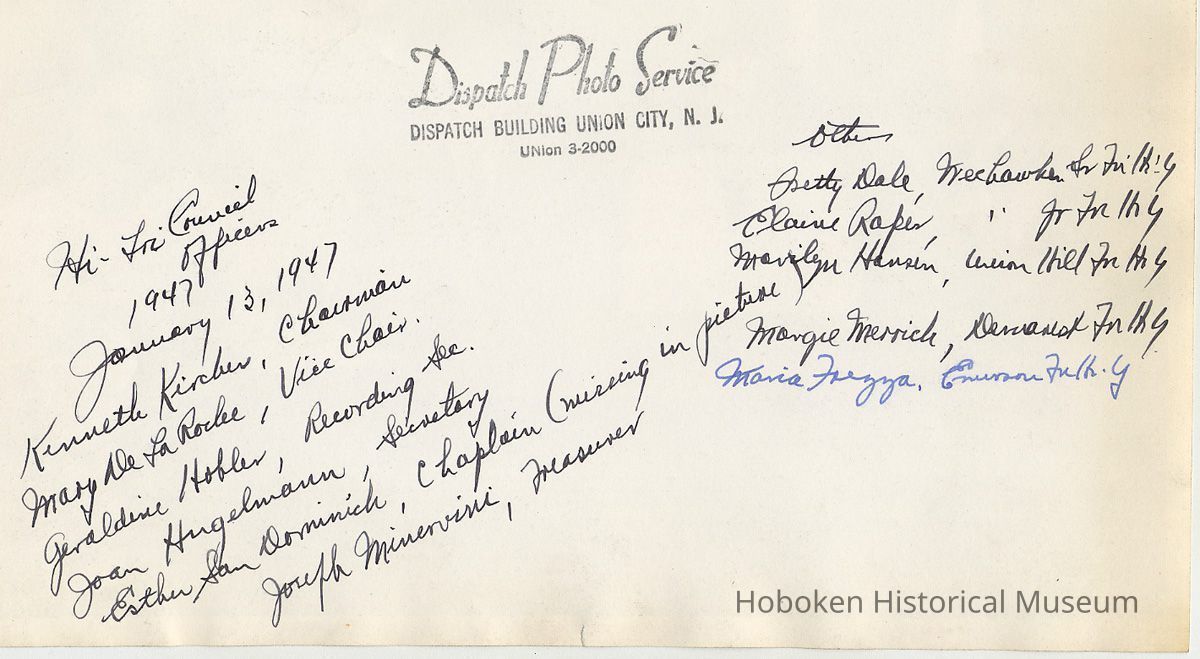 Dispatch Photo Service
DISPATCH BUILDING UNION CITY, N. J.
UNion 3-2000
Hi-Tri Council
Officers
1947
January 13, 1947
Kenneth Kircher, Chairman
Mary De La Rochee, Vice Chair.
Geraldine Hobler, Recording Sec.
Joan Hugelmann, Secretary
Esther San Dominick, Chaplain (missing in picture)
Joseph Minervini, Treasurer
Others
Betty Dale, Weehawken Sr Tri Hi-Y
Elaine Raper, " Jr Tri Hi Y
Marilyn Hansen, Union Hill Tri Hi Y
Margie Merrick, Demarest Tri Hi Y
Maria Frezza, Emerson Tri Hi-Y
Hoboken Historical Museum